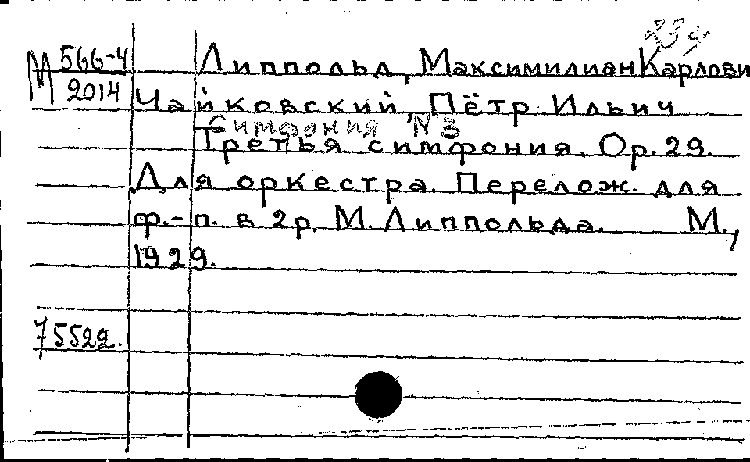 239
М 566-4 Липпольд, Максимилиан Карлови
2014 Чайковский, Пётр Ильич
Симфония N 3
Третья симфония. Op. 29.
Для оркестра. Перелож. для
ф.-п. в 2р. М. Липпольда. М.,
1929.
75522.